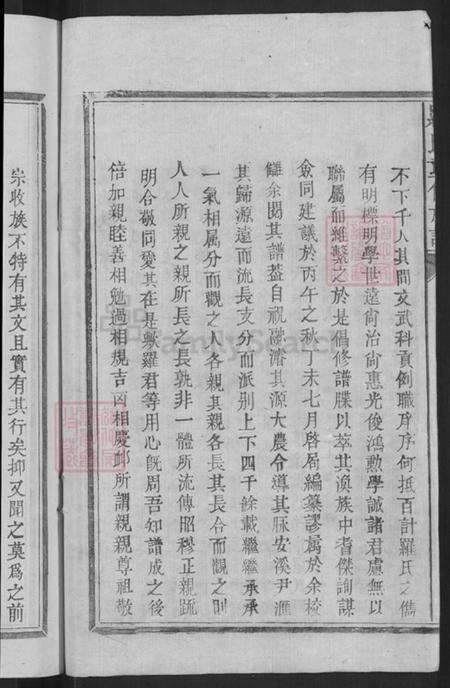 不下千人其間文武科貢例職庠序何抵百計羅氏之儁
有明標明學世遠尚治尚惠光俊鴻勳學誠諸君慮無以
聯屬而維繫之於是倡修譜牒以萃其渙族中耆傑詢謀
僉同建議於丙午之秋丁未七月啓局編纂謬屬於余校
讎余閱其譜蓋自祝融濬其源大農令導其脉安溪尹滙
其歸源遠而流長支分而派別上下四千餘載繼繼承承
一氣相屬分而觀之人各親其親各長其長合而觀之則
人人所親之親所長之長孰非一體所流傳昭穆正親疏
明合敬同愛其在是歟羅君等用心旣周吾知譜成之後
倍加親睦善相勉過相規吉凶相慶邺所謂親親尊祖敬
宗收族不特有其文且實有其行矣抑又聞之莫爲之前
FamilySearch